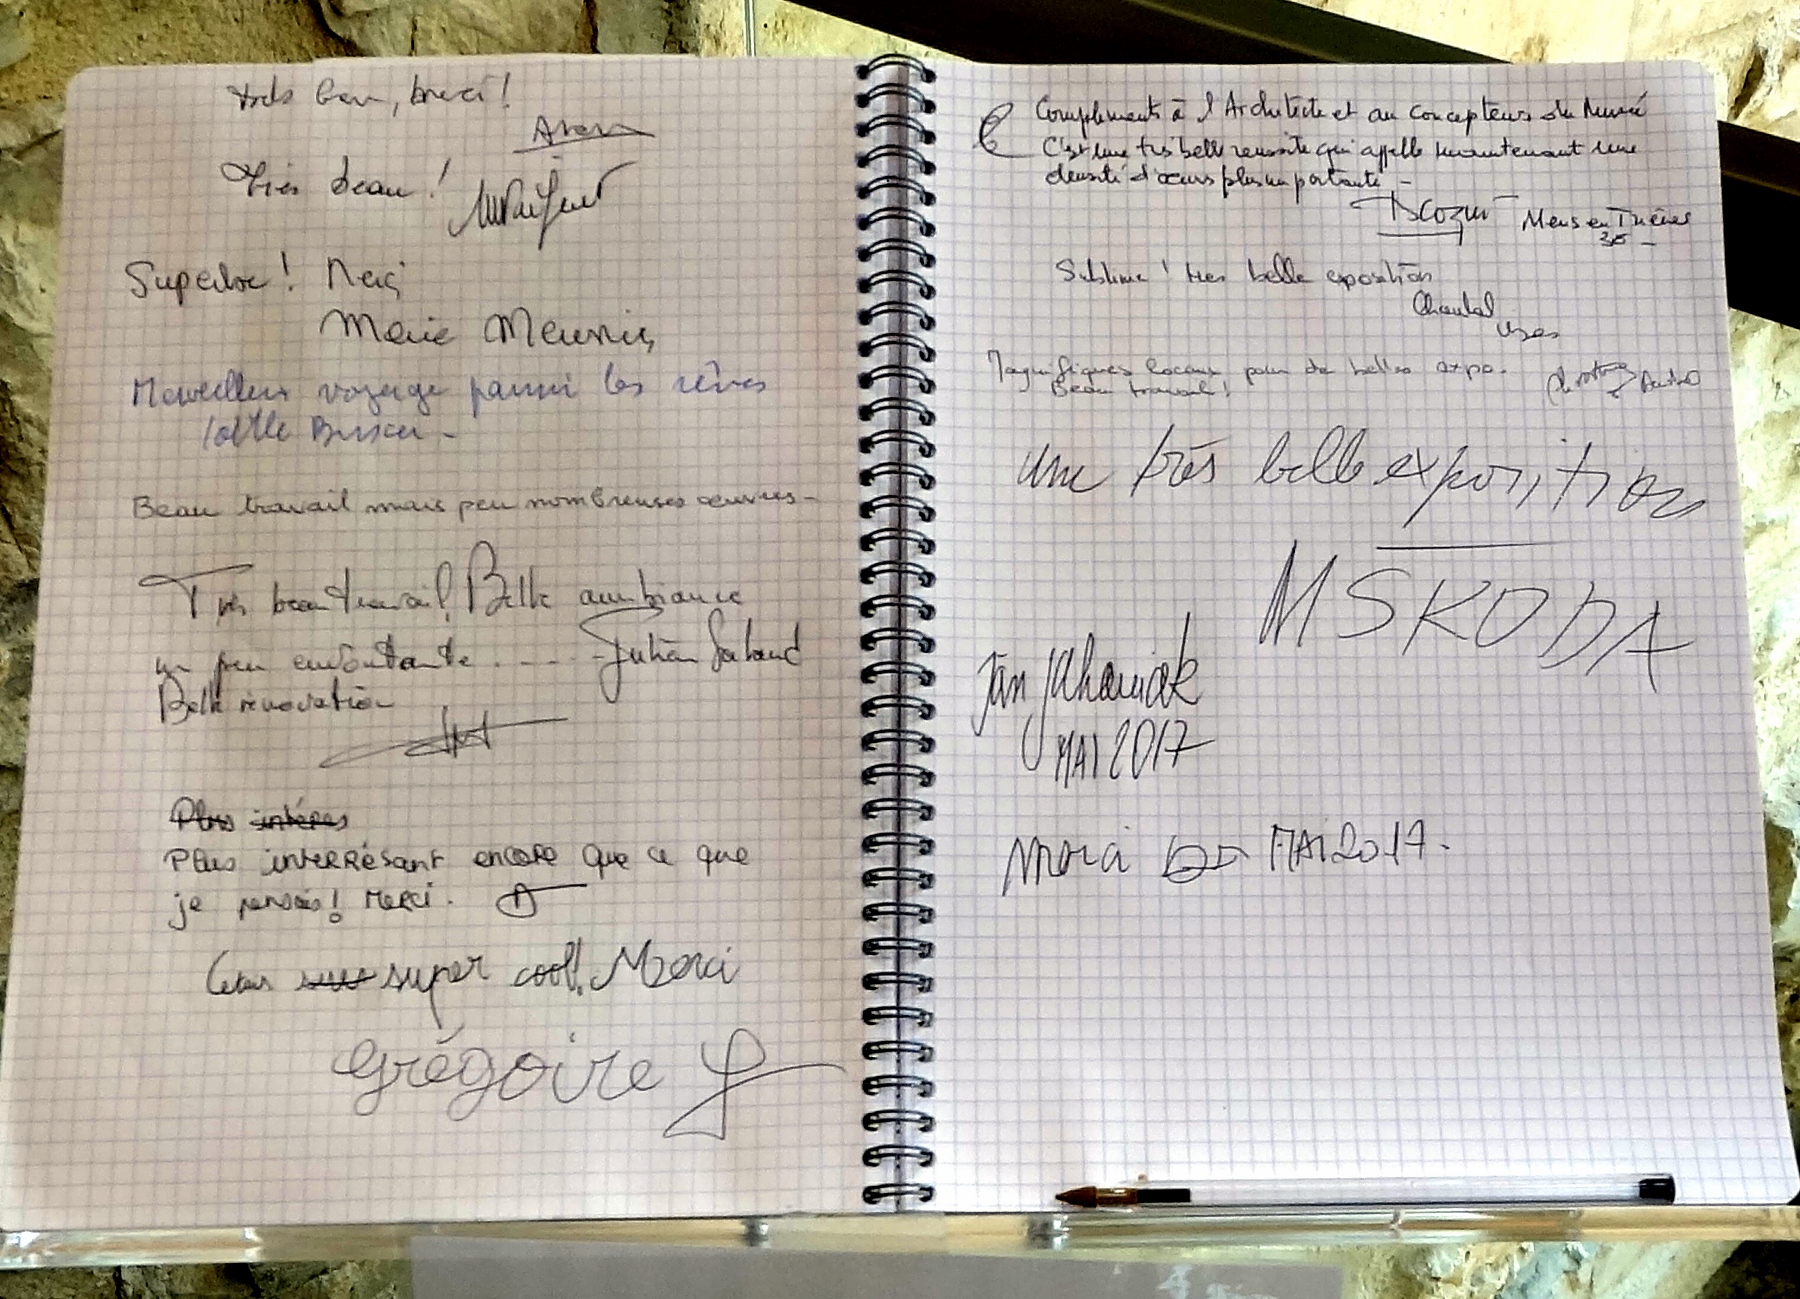 très bien, merci!
Très beau!
Superbe! Merci
Marie Meunier
Merveilleux voyage parmi les rêves
Beau travail mais peu nombreuses œuvres -
Très beau travail, Belle ambiance
un peu envoutante ..... Julian
Belle rénovation
Plus intéres
Plus interrésant encore que ce que
je pensais! Merci.
super cool! Merci
Grégoire
Compliments à l'Architecte et au concepteurs du Musée
C'est une très belle réussite qui appelle maintenant une
densité d'œuvres plus importante -
Mens en Trièves
38 -
Sublime! très belle exposition
Chantal
Uzes
Magnifiques locaux pour de belles expo.
Beau travail!
une très belle exposition
M SKODA
Jan
MAI 2017
Merci MAI 2017.